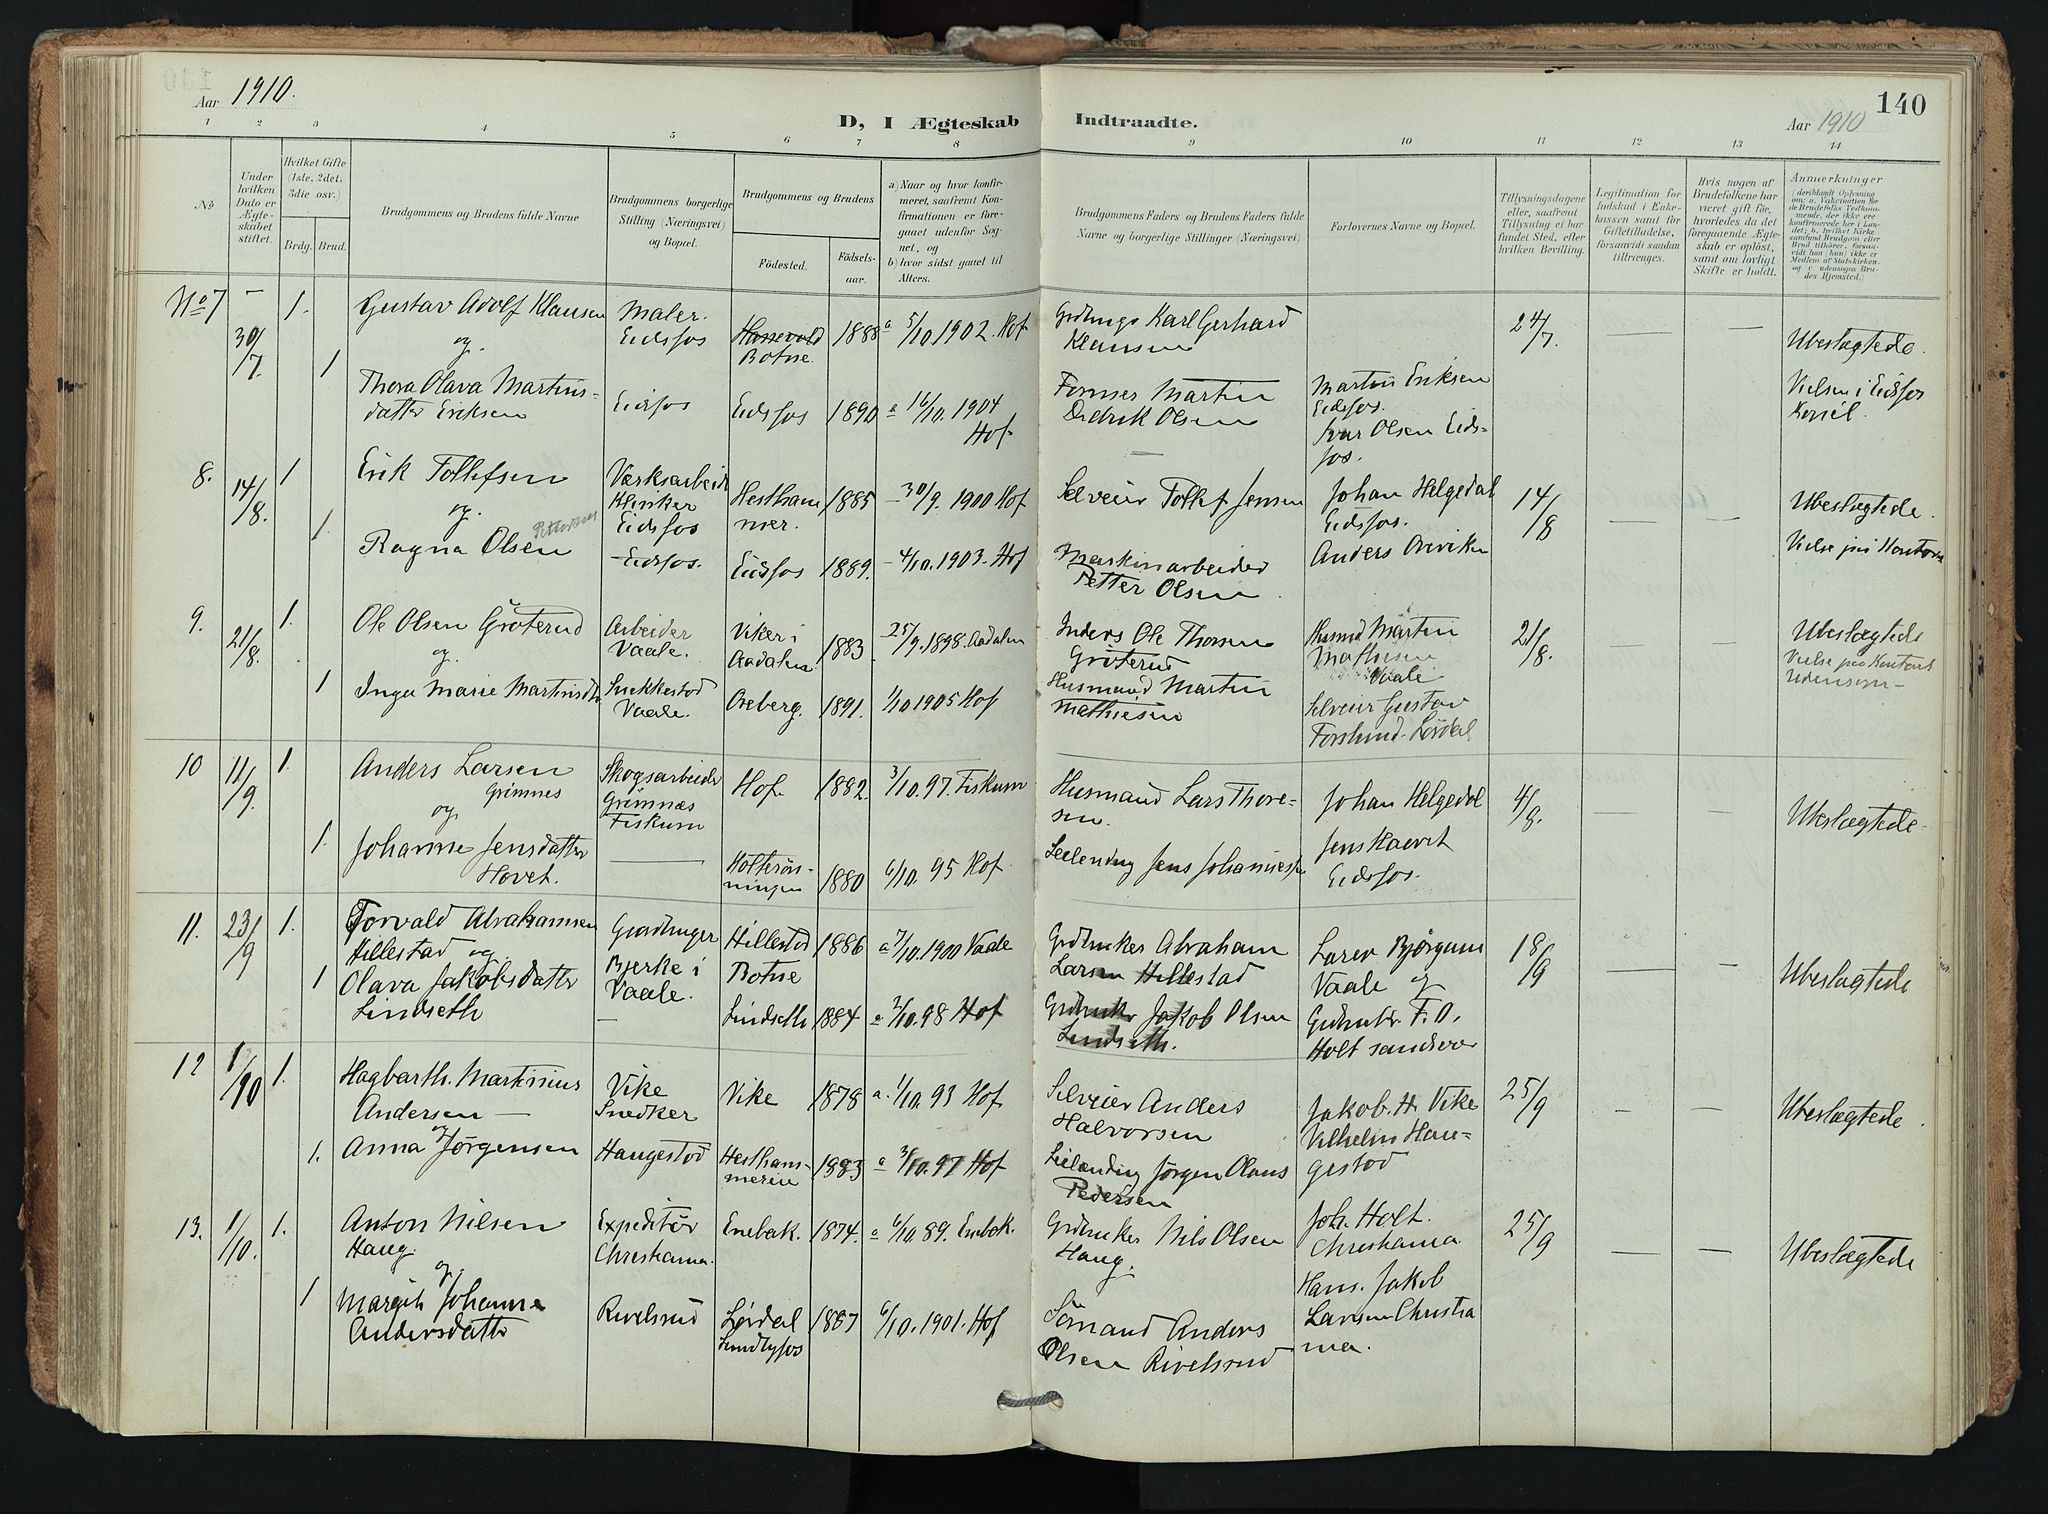 Aar 1910.
D, I Ægteskab Indtraadte.
140
Aar 1910
1 2 3 4 5 6 7 8 9 10 11 12 13 14
No.
Under hvilken Dato er Ægteskabet stiftet.
Hvilket Gifte (1ste, 2det, 3die osv.)
Brdg. Brud.
Brudgommens og Brudens fulde Navne
Brudgommens borgerlige Stilling (Næringsvei) og Bopæl.
Brudgommens og Brudens
Födested.
Födselsaar.
a) Naar og hvor konfirmeret, saafremt Konfirmationen er foregaaet udenfor Sognet, og
b) hvor sidst gaaet til Alters.
Brudgommens Faders og Brudens Faders fulde Navne og borgerlige Stillinger (Næringsvei)
Forlovernes Navne og Bopæl.
Tillysningsdagene eller, saafremt Tillysning ei har fundet Sted, efter hvilken Bevilling.
Legitimation for Indskud i Enkekassen samt for Giftetilladelse, forsaavidt saadan tiltrænges.
Hvis nogen af Brudefolkene har været gift för, hvorledes da det foregaaende Ægteskab er oplöst, samt om lovligt Skifte er holdt.
Anmærkninger
No 7 30/7. 1. Gustav Adolf Klausen Maler. Eidsfos Hassevold Botne. 1888 a 5/10 1902. Hof Karl Gerhard Klausen 24/7. — — Ubeslægtede.
og
1 Thora Olava Martinsdatter Eriksen Eidsfos Eidsfos 1890 a 16/10. 1904 Hof Martin Didrik Olsen Martin Eriksen Eidsfos. Ivar Olsen Eidsfos. Vielsen i Eidsfos
8. 14/8. 1 Erik Tollefsen Værksarbeid Klinker Eidsfos Hesthammer. 1885 — 30/9. 1900 Hof Selveier Tollef Jensen Johan Helgedal Eidsfos. 14/8 — — Ubeslægtede.
og
1. Ragna Olsen Pettersen Eidsfos. Eidsfos 1889. — 4/10. 1903. Hof Maskinarbeider Petter Olsen Anders Vielse paa Kontoret
9. 21/8. 1. Ole Olsen Gröterud Arbeider Vaale. Viker i Aadalen 1883 25/9. 1898. Aadalen Ole Thorsen Gröterud Husmd Martin Mathiesen Vaale 21/8. — — Ubeslægtede
og
1 Inga Marie Martinsdtr Snekkestad Vaale. Oreberg. 1891. 1/10 1905 Hof Husmand Martin Mathiesen Selveier Gustav Forslund Lördal Vielse paa Kontoret Udensogn —
10 11/9. 1. Anders Larsen Grimnes Skogsarbeider Grimnæs Fiskum Hof 1882. 3/10. 97. Fiskum Husmand Lars Thoresen. Johan Helgedal 4/9. — — Ubeslægtede
og
1. Johanne Jensdatter Hovet. — 1880 6/10. 95 Hof Leilending Jens Johannesen Jens Eidsfos.
11. 23/9 1. Torvald Abrahamsen Hillestad og Gaardbruger Bjerke i Vaale. Hillestad Botne 1886 a 7/10. 1900 Vaale Abraham Larsen Hillestad Larsen Vaale og 18/9 — — Ubeslægtede
1 Olava Jakobsdatter Lindseth — Lindseth 1884 a 2/10. 98 Hof Jakob Olsen Lindseth. F. O. Holt
12 1/10 1. Hagbarth. Martinius Andersen — og Vike Snedker Vike 1878 a. 1/10. 93 Hof Selveier Anders Halvorsen Jakob. H. Vike 25/9 — — Ubeslægtede
1. Anna Jørgensen Haugestad Hesthammeren 1883 a 3/10. 97 Hof Leilending Jørgen Olaus Pedersen Vilhelm Haugestad
13. 1/10. 1. Anton Nilsen Haug. og Expeditör Christiania. Enebak. 1874. a 6/10. 89. Enebak. Nils Olsen Haug. Joh. Holt. Christiania. 25/9 — — Ubeslægtede
1 Margith Johanne Andersdatter Rivelsrud Lördal 1887 6/10. 1901. Hof Sömand Anders Olsen Rivelsrud Hans. Jakob Larsen Christiania.